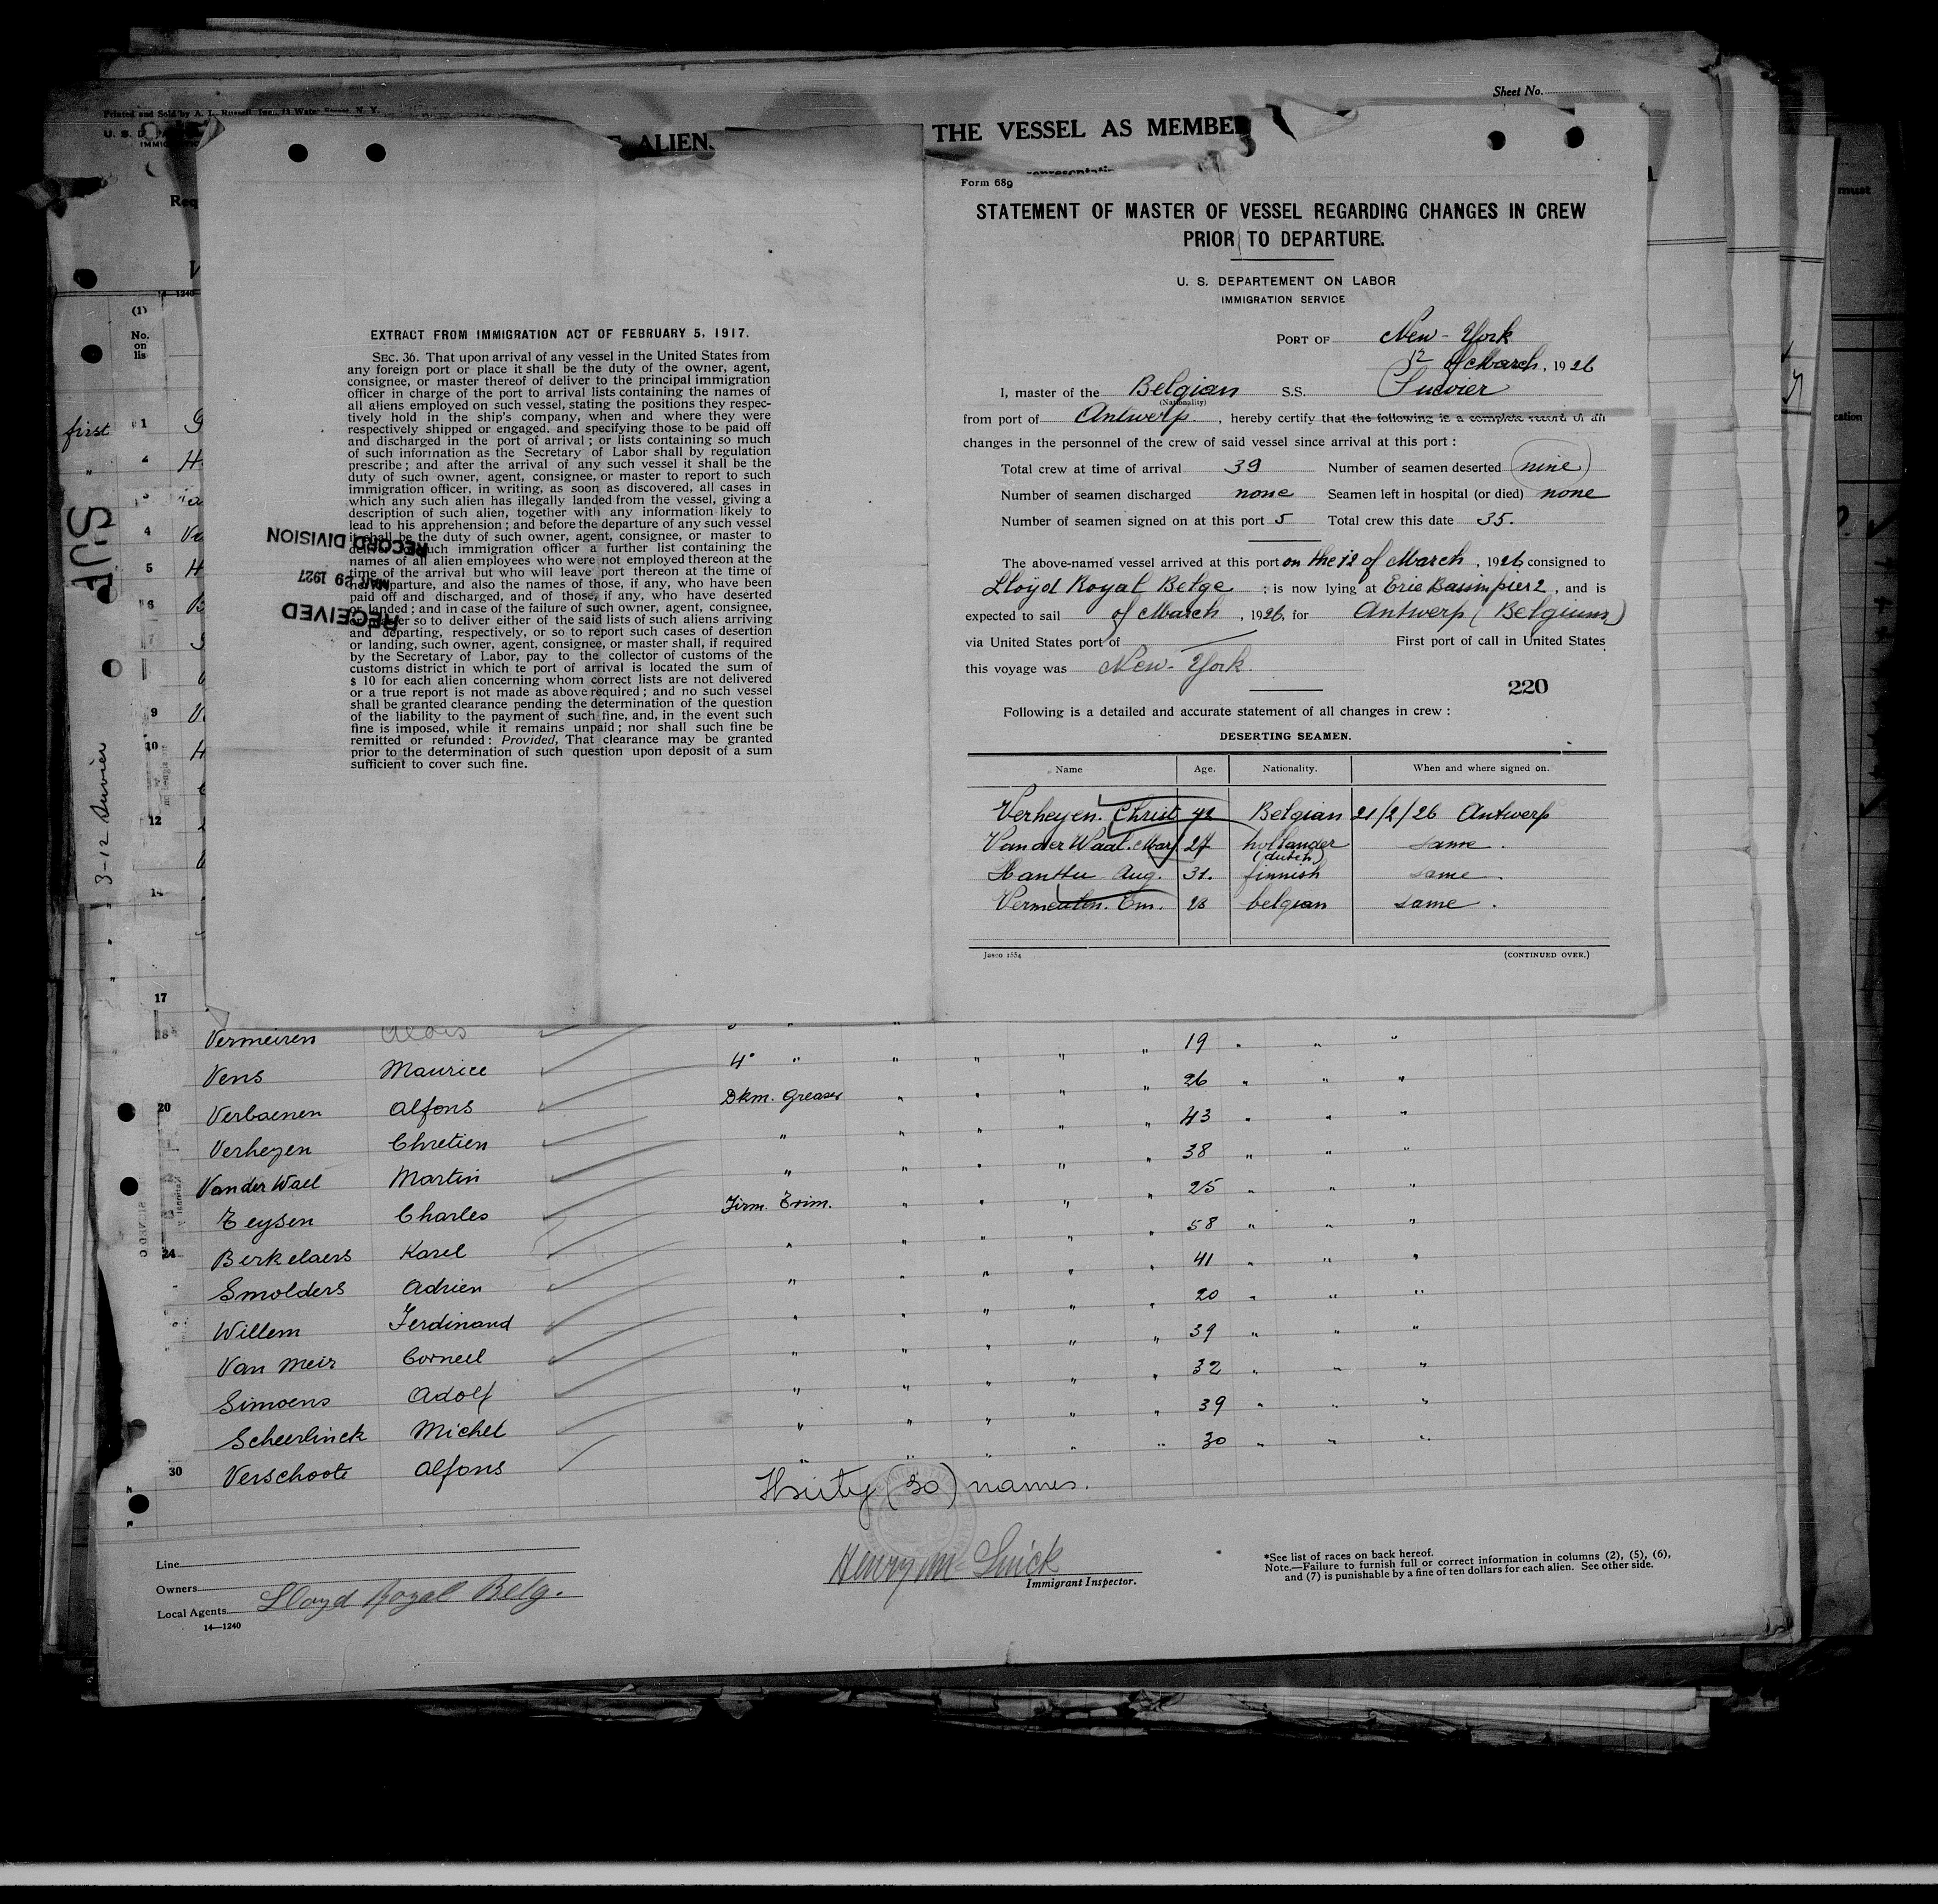 Sheet No.
Printed and Sold by A. L. Russell, Inc., 13 Water Street, N. Y.
E ALIEN.
THE VESSEL AS MEMBE
EXTRACT FROM IMMIGRATION ACT OF FEBRUARY 5, 1917.
SEC. 36. That upon arrival of any vessel in the United States from
any foreign port or place it shall be the duty of the owner, agent,
consignee, or master thereof of deliver to the principal immigration
officer in charge of the port to arrival lists containing the names of
all aliens employed on such vessel, stating the positions they respec-
tively hold in the ship's company, when and where they were
respectively shipped or engaged, and specifying those to be paid off
and discharged in the port of arrival; or lists containing so much
of such information as the Secretary of Labor shall by regulation
prescribe; and after the arrival of any such vessel it shall be the
duty of such owner, agent, consignee, or master to report to such
immigration officer, in writing, as soon as discovered, all cases in
which any such alien has illegally landed from the vessel, giving a
description of such alien, together with any information likely to
lead to his apprehension; and before the departure of any such vessel
it shall be the duty of such owner, agent, consignee, or master to
deliver to such immigration officer a further list containing the
names of all alien employees who were not employed thereon at the
time of the arrival but who will leave port thereon at the time of
departure, and also the names of those, if any, who have been
paid off and discharged, and of those, if any, who have deserted
or landed; and in case of the failure of such owner, agent, consignee,
or master so to deliver either of the said lists of such aliens arriving
and departing, respectively, or so to report such cases of desertion
or landing, such owner, agent, consignee, or master shall, if required
by the Secretary of Labor, pay to the collector of customs of the
customs district in which te port of arrival is located the sum of
$ 10 for each alien concerning whom correct lists are not delivered
or a true report is not made as above required; and no such vessel
shall be granted clearance pending the determination of the question
of the liability to the payment of such fine, and, in the event such
fine is imposed, while it remains unpaid; nor shall such fine be
remitted or refunded: Provided, That clearance may be granted
prior to the determination of such question upon deposit of a sum
sufficient to cover such fine.
RECEIVED
MAR 29 1927
RECORD DIVISION
Form 689
STATEMENT OF MASTER OF VESSEL REGARDING CHANGES IN CREW
PRIOR TO DEPARTURE.
U. S. DEPARTEMENT ON LABOR
IMMIGRATION SERVICE
PORT OF New-York
12 of March, 1926
I, master of the Belgian S.S.
(Nationality)
from port of Antwerp, hereby certify that the following is a complete record of all
changes in the personnel of the crew of said vessel since arrival at this port:
Total crew at time of arrival 39 Number of seamen deserted nine
Number of seamen discharged none Seamen left in hospital (or died) none
Number of seamen signed on at this port 5 Total crew this date 35.
The above-named vessel arrived at this port on the 12 of March, 1926 consigned to
Lloyd Royal Belge : is now lying at Erie Basin pier 2, and is
expected to sail of March, 1926, for Antwerp (Belgium)
via United States port of First port of call in United States
this voyage was New-York.
220
Following is a detailed and accurate statement of all changes in crew:
DESERTING SEAMEN.
Name Age. Nationality. When and where signed on.
Verheyen. Christ 42 Belgian 21/2/26 Antwerp
Van der Waal. Mar 27 hollander (dutch) same.
Aug. 31. finnish same.
Em. 28 belgian same.
Jasco 1554 (CONTINUED OVER.)
(1)
No.
on
lis
first 1
4
5
6
7
9
10
12
14
17
3-12
18 Vermeiren Alois " " 19 " " "
Vens Maurice 4° " " " " " 26 " " "
20 Verbaenen Alfons Dkm. Greaser " " " " 43 " " "
Verheyen Chretien " " " " " 38 " " "
Van der Wael Martin " " " " " 25 " " "
Teysen Charles Firm. Trim. " " " " 58 " " "
24 Berkelaers Karel " " " " " 41 " " "
Smolders Adrien " " " " " 20 " " "
Willem Ferdinand " " " " " 39 " " "
Van Meir Corneel " " " " " 32 " " "
Simoens Adolf " " " " " 39 " " "
Scheerlinck Michel " " " " " 30 " " "
30 Verschoote Alfons
Thirty (30) names.
Line
Owners
Local Agents Lloyd Royal Belg.
14—1240
Immigrant Inspector.
*See list of races on back hereof.
Note.—Failure to furnish full or correct information in columns (2), (5), (6),
and (7) is punishable by a fine of ten dollars for each alien. See other side.